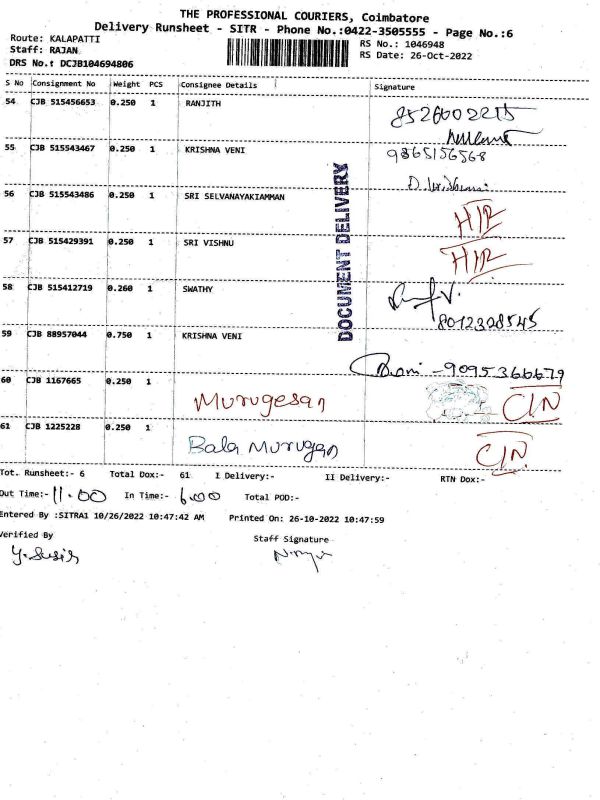 THE PROFESSIONAL COURIERS, Coimbatore
Delivery Runsheet - SITR - Phone No.:0422-3505555 - Page No.:6
Route: KALAPATTI
Staff: RAJAN
DRS No.: DCJB104694806
RS No.: 1046948
RS Date: 26-Oct-2022
S No Consignment No Weight PCS Consignee Details Signature
54 CJB 515456653 0.250 1 RANJITH
55 CJB 515543467 0.250 1 KRISHNA VENI 9865156568
56 CJB 515543486 0.250 1 SRI SELVANAYAKIAMMAN
57 CJB 515429391 0.250 1 SRI VISHNU
58 CJB 515412719 0.260 1 SWATHY
8012328545
59 CJB 88957044 0.750 1 KRISHNA VENI
9095366679
60 CJB 1167665 0.250 1 Murugesan CIN
61 CJB 1225228 0.250 1 Bala Murugan CIN
DOCUMENT DELIVERY
Tot. Runsheet:- 6 Total Dox:- 61 I Delivery:- II Delivery:- RTN Dox:-
Out Time:- 11.00 In Time:- 6.00 Total POD:-
Entered By :SITRA1 10/26/2022 10:47:42 AM Printed On: 26-10-2022 10:47:59
Verified By Staff Signature